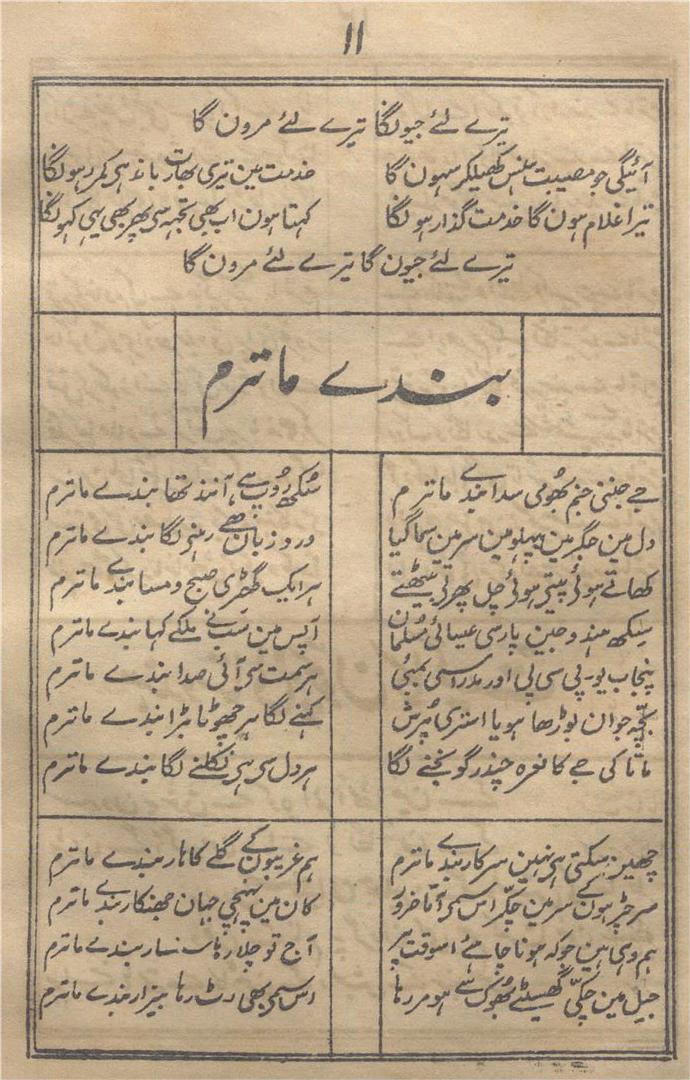 ۱۱
تیرے لئے جیونگا تیرے لئے مرون گا
آئیگی جو مصیبت ہنس کھیلکر سہون گا خدمت مین تیری بھارت باندہی کمر رہونگا
تیرا غلام ہون گا خدمت گذار ہونگا کہتا ہون اب بھی تجہہ سی پھر بھی یہی کہونگا
تیرے لئے جیون گا تیرے لئے مرون گا
بندے ماترم
جے جننی جنم بھُومی سدا بندے ماترم سُکھ رُوپ ہے آنند تھا بندے ماترم
دل مین جگر مین پہلو مین سر مین سما گیا ورد زبان ہے رہنے لگا بندے ماترم
کھاتے ہوئی پیتی ہوئی چل پھرتی بیٹھتے ہر ایک گھڑی صبح و مسا بندے ماترم
سِکھ ہندو جین پارسی عیسائی مُسلمان آپس مین سب نے ملکے کہا بندے ماترم
پنجاب یو۔پی سی پی اور مدراسی بمبئی ہر سمت سی آئی صدا بندے ماترم
بچّہ جوان بوڑھا ہو یا استری پُرش کہنے لگا ہر چھوٹا بڑا بندے ماترم
ماتا کی جے کا نعرہ چندر گونجنے لگا ہر دل سی ہی نکلنے لگا بندے ماترم
چھین سکتی ہی نہین سرکار بندے ماترم ہم غریبون کے گلے کا ہار بندے ماترم
سر چڑہون کے سر مین چکّر اس سمی آتا ضرور کان مین پہنچی جہان جھنکار بندے ماترم
ہم وہی ہین جو کہ ہونا چاہئے اسوقت پر آج تو چلا رہا سنسار بندے ماترم
جیل مین چکّی گھسیٹے بھُوک سے ہو مر رہا اس سمی بھی رٹ رہا بیزار بندے ماترم